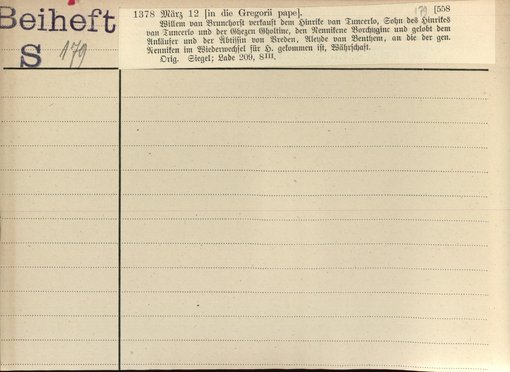 Beiheft
S 179
1378 März 12 [in die Gregorii pape]. 179 [558
Willem van Brunchorst verkauft dem Hinrike van Tuncerlo, Sohn des Hinrikes
van Tuncerlo und der Ghezen Gholtine, den Nenniken Borchginc und gelobt dem
Ankäufer und der Äbtissin von Vreden, Aleyde van Benthem, an die der gen.
Nenniken im Wiederwechsel für H. gekommen ist, Währschaft.
Orig. Siegel; Lade 209, 8III.